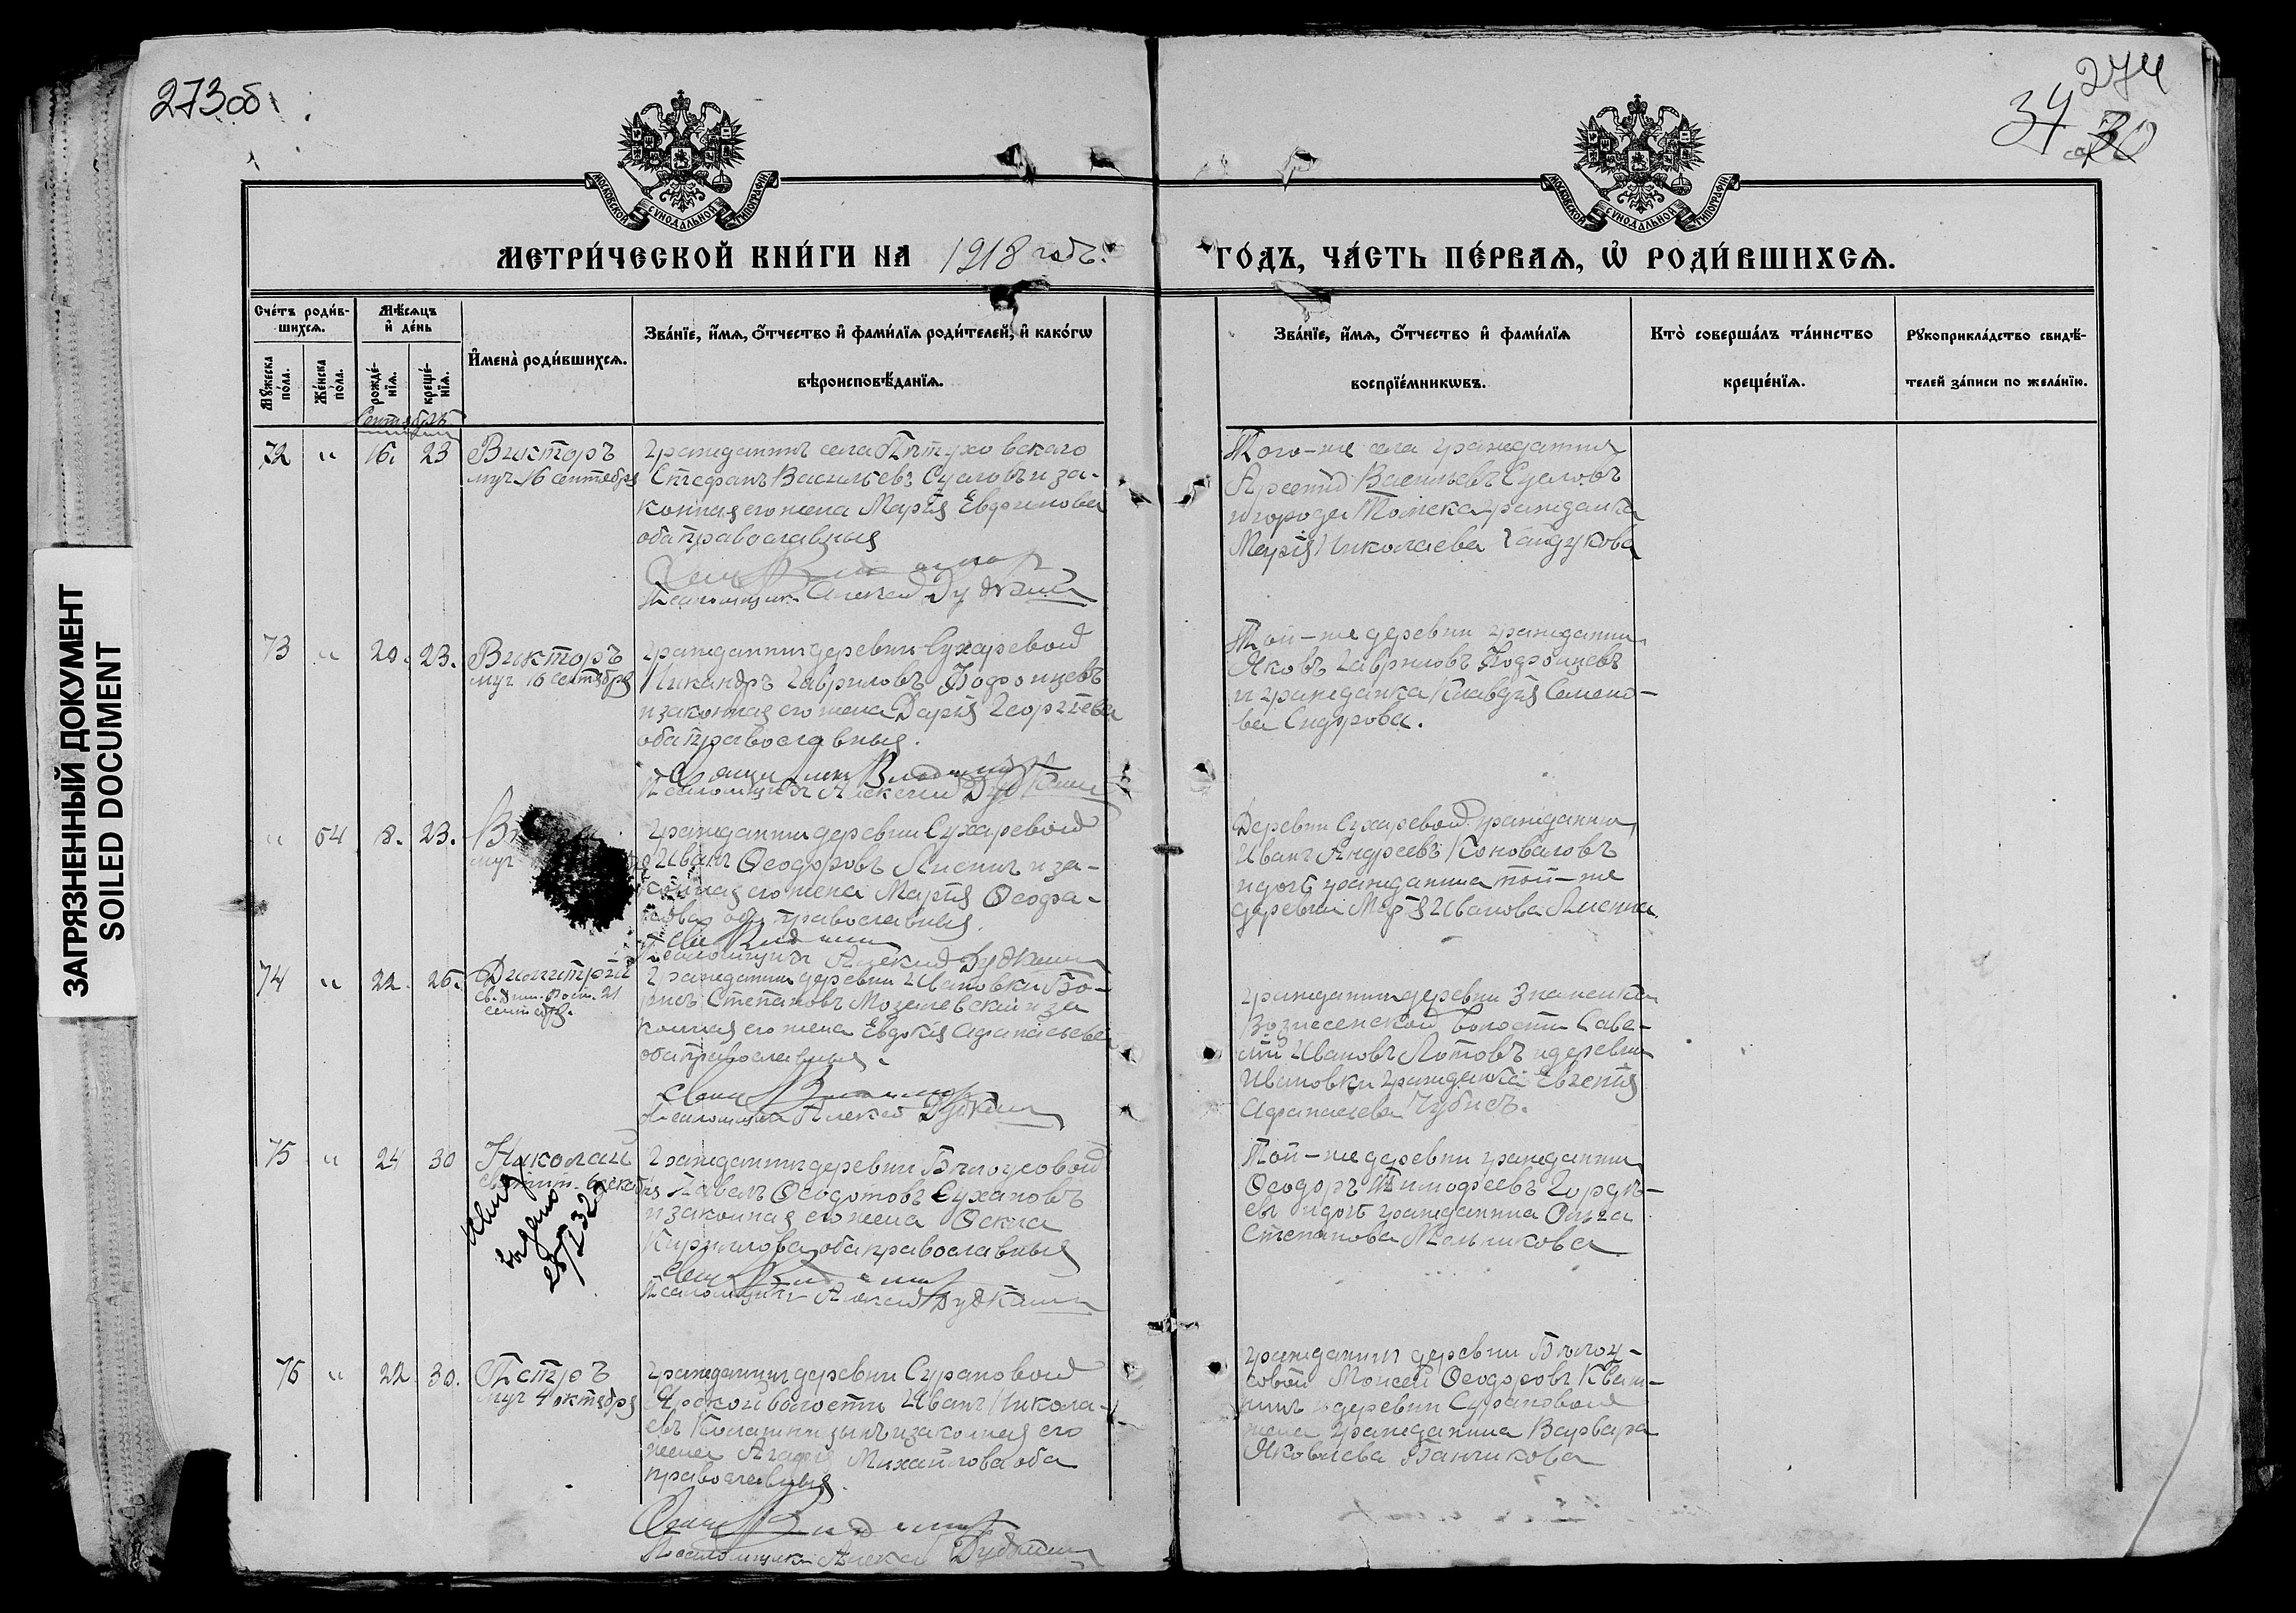 273об
274
34
30
ЗАГРЯЗНЕННЫЙ ДОКУМЕНТ
SOILED DOCUMENT
МОСКОВСКОЙ СѴНОДАЛЬНОЙ ТИПОГРАФІИ
МОСКОВСКОЙ СѴНОДАЛЬНОЙ ТИПОГРАФІИ
МЕТРИ́ЧЕСКОЙ КНИ́ГИ НА 1918 годъ.
ГО́ДЪ, ЧА́СТЬ ПЕ́РВАѦ, Ѡ҆ РОДИ́ВШИХСѦ.
Сче́тъ роди́в-
шихсѧ.
Мѣ́сѧцъ
и҆ де́нь
Мꙋ́жеска
по́ла.
Же́нска
по́ла.
рожде́-
нїѧ.
креще́-
нїѧ.
И҆мена̀ роди́вшихсѧ.
Зва́нїе, и҆́мѧ, ѻ҆́тчество и҆ фами́лїѧ роди́телей, и҆ како́гѡ
вѣроисповѣ́данїѧ.
Зва́нїе, и҆́мѧ, ѻ҆́тчество и҆ фами́лїѧ
воспрїе́мникѡвъ.
Кто̀ соверша́лъ та́инство
креще́нїѧ.
Рꙋкоприкла́дство свидѣ́-
телей за́писи по жела́нїю.
Сентябрь
72 " 16. 23 Викторъ
муч. 16 сентября
гражданинъ села Пѣтуховскаго
Стефанъ Васильевъ Сусловъ и за-
конная его жена Марія Евфимова
оба православныя
Псаломщикъ Алексѣй Дудкинъ
Того-же села гражданинъ
Арсеній Васильевъ Сусловъ
и города Томска гражданка
Марія Николаева Гайдукова
73 " 20. 23. Викторъ
муч 16 сентября
гражданинъ деревни Сухаревой
Никандръ Гавриловъ
и законная его жена Дарія Георгіева
оба православныя.
Псаломщикъ Алексѣй Дудкинъ
Той-же деревни гражданинъ
Яковъ Гавриловъ
и гражданка Клавдія Семено-
ва Сидорова.
" 54 8. 23.
муч
гражданинъ деревни Сухаревой
Иванъ Ѳеодоровъ Лисинъ и за-
конная его жена Марія
православныя.
Псаломщикъ Алексѣй Дудкинъ
Деревни Сухаревой гражданинъ
Иванъ Андреевъ Коноваловъ
и дочь гражданина той-же
деревни Марія Иванова Лисина
74 " 22. 25. Димитрій
св. Дим. Рост. 21
сентября.
Гражданинъ деревни Ивановки Бо-
рисъ Степановъ и за
конная его жена Евдокія Афанасьева
оба православныя.
Псаломщикъ Алексѣй Дудкинъ
гражданинъ деревни Знаменки
Вознесенской волости Саве-
лій Ивановъ Лотовъ и деревни
Ивановки гражданка Евгенія
Афанасьева
75 " 24 30 Николай
святит. 6 декабря
выдано
Гражданинъ деревни Бѣлоусовой
Павелъ Ѳеодотовъ Сухановъ
и законная его жена Ѳекла
Кириллова оба православныя
Псаломщикъ Алексѣй Дудкинъ
Той-же деревни гражданинъ
Ѳеодоръ Тимофеевъ Гордѣ-
евъ и дочь гражданина Ольга
Степанова Мельникова
76 " 22 30. Петръ
муч 4 октября
гражданинъ деревни Сурановой
Ярской волости Иванъ Никола-
евъ и законная его
жена Агафія Михайлова оба
православныя.
Псаломщикъ Алексѣй Дудкинъ
гражданинъ деревни Бѣлоу-
совой Моисей Ѳеодоровъ Кваш-
нинъ и деревни Сурановой
жена гражданина Варвара
Яковлева Банникова